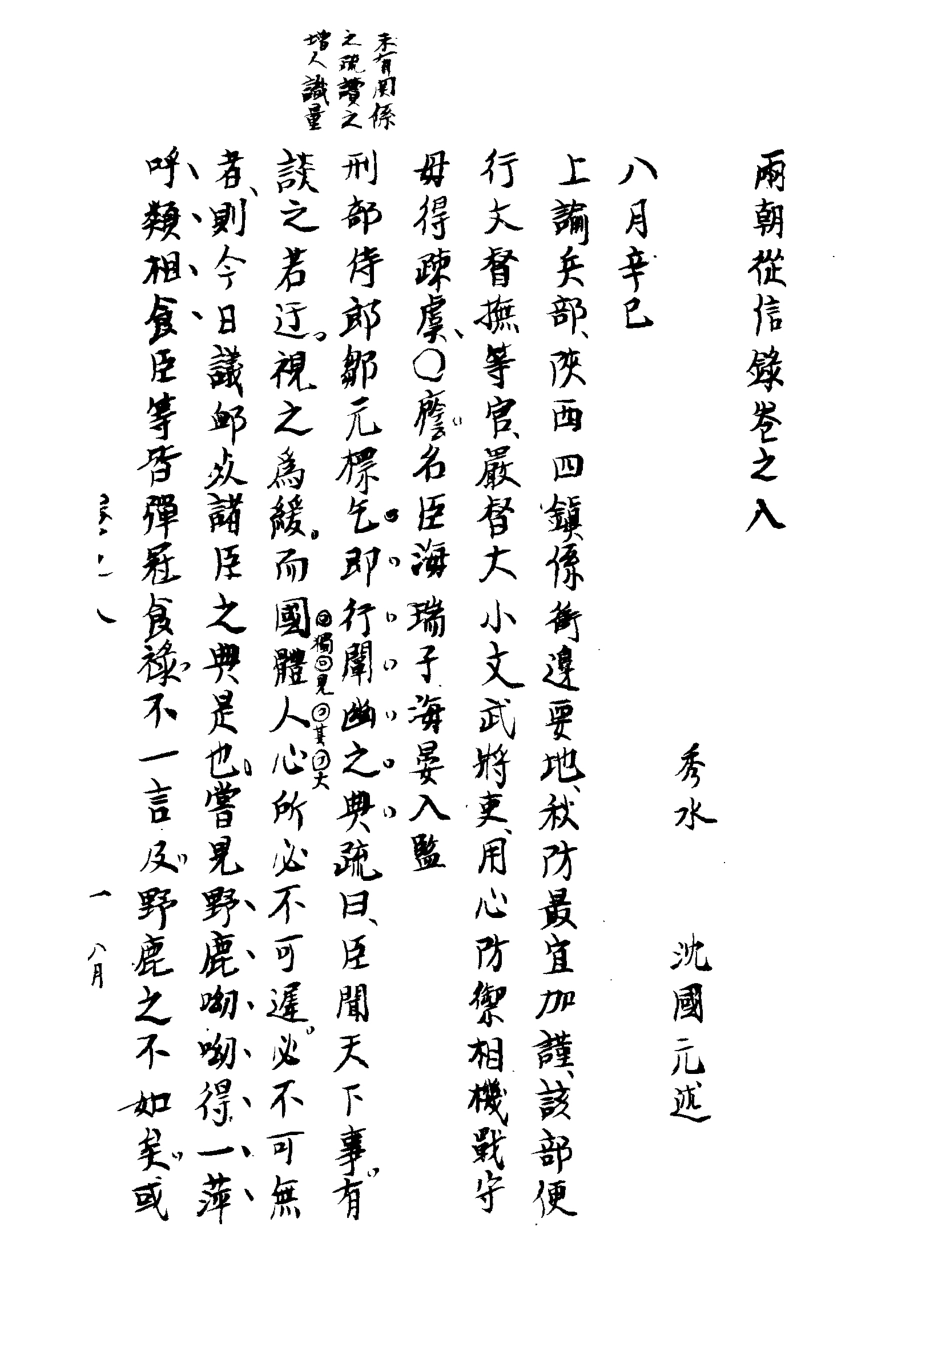 兩朝從信錄卷之八
秀水 沈國元述
八月辛巳
上諭兵部、陝西四鎮係衝邊要地、秋防最宜加謹、該部便
行文督撫等官、嚴督大小文武將吏、用心防禦相機戰守
毋得疎虞、○廕名臣海瑞子海晏入監
刑部侍郎鄒元標乞即行闡幽之典疏曰、臣聞天下事有
談之若迂。視之爲緩。而國體人心所必不可遲。必不可無
者、則今日議卹炎諸臣之典是也。嘗見野鹿呦呦得一萍
呼類相食臣等皆彈冠食祿。不一言及野鹿之不如矣或
未有関係
之疏讀之
增人識量
獨見其大
卷之八
一 八月